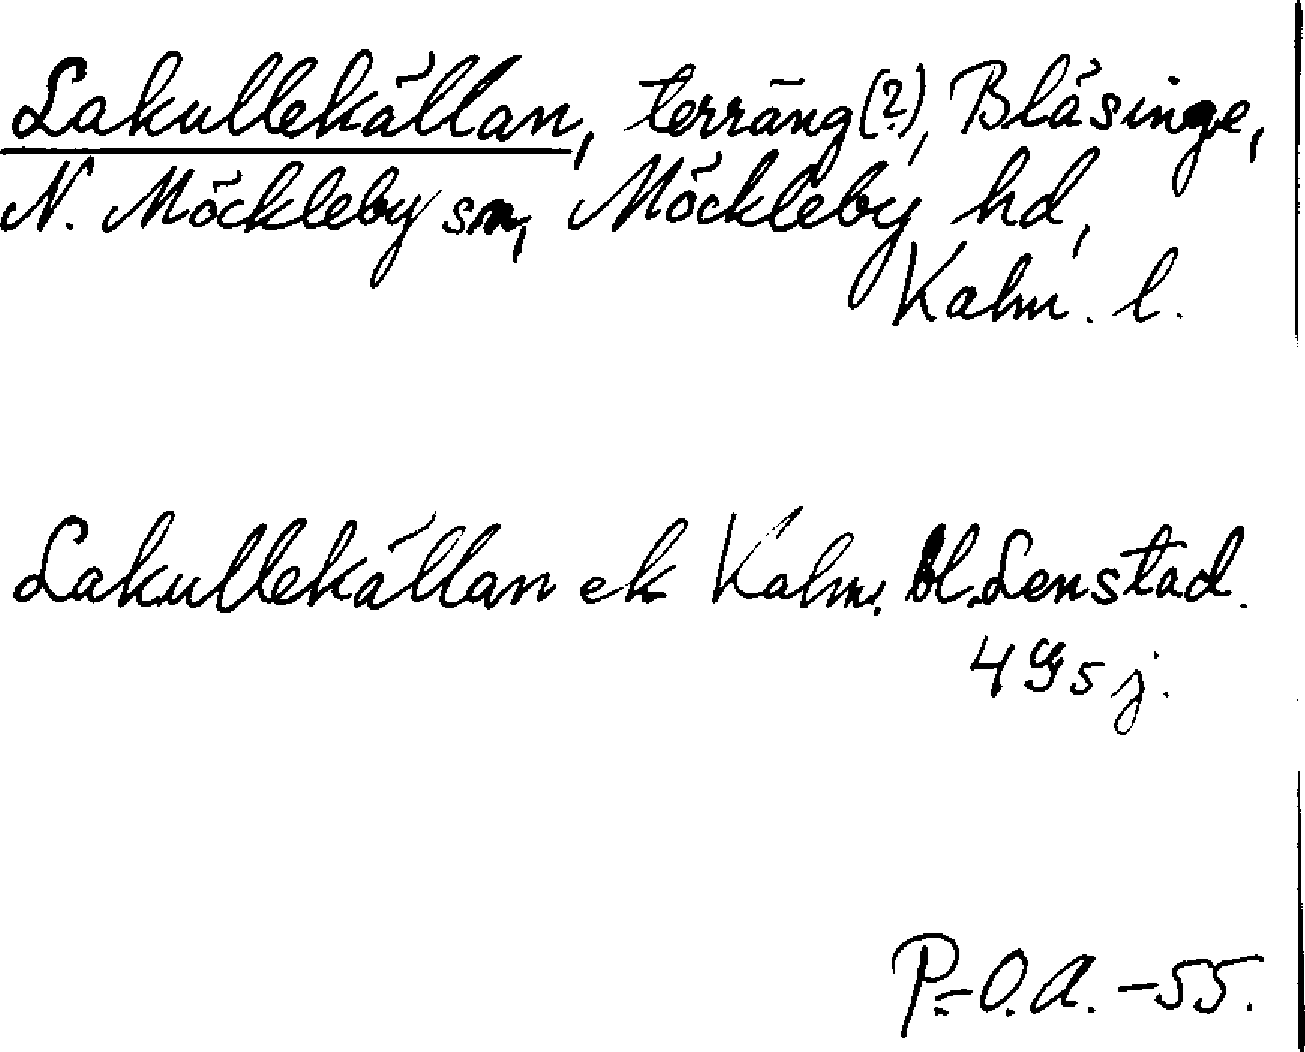 Lakullekällan, terräng(?), Blåsinge,
N. Möckleby sn, Möckleby hd,
Kalm. l.
Lakullekällan ek Kalm. bl. Lenstad.
4 g 5 j.
P.-O.A. -55.